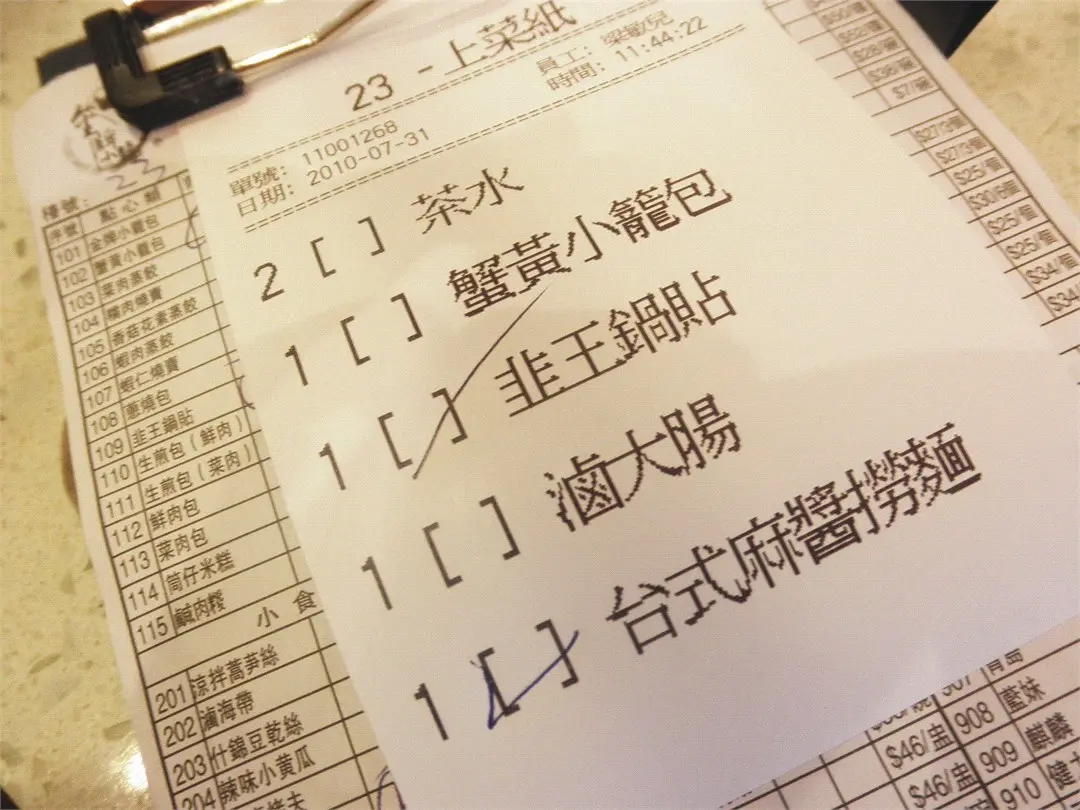 23 - 上菜紙
員工: 梁敏兒
單號: 11001268
時間: 11:44:22
日期: 2010-07-31
2 [ ] 茶水
1 [ ] 蟹黃小籠包
1 [ ] 韭王鍋貼
1 [ ] 滷大腸
1 [ ] 台式麻醬撈麵
23
檯號:
序號 點心類
101 金牌小籠包
102 蟹黃小籠包
103 菜肉蒸餃
104 糯肉燒賣
105 香菇花素蒸餃
106 蝦肉蒸餃
107 蝦仁燒賣
108 蔥燒包
109 韭王鍋貼
110 生煎包(鮮肉)
111 生煎包(菜肉)
112 鮮肉包
113 菜肉包
114 筒仔米糕
115 鹹肉糉
小食
201 涼拌萵笋絲
202 滷海帶
203 什錦豆乾絲
204 辣味小黃瓜
$7/個
$27/3個
$27/3個
$25/個
$30/6個
$25/個
$25/個
$34/個
$34/
907 青島
908 藍妹
909 麒麟
910 健
$46/盅
$46/盅